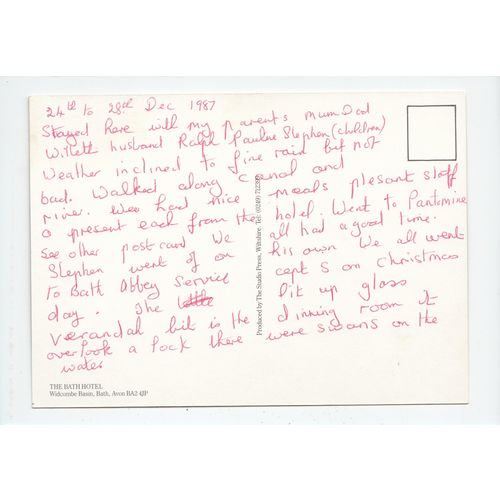 24th to 28th Dec 1987
Stayed here with my parents Mum Dad
Willett husband Ralph Pauline Stephen (children)
Weather inclined to fine rain but not
bad. Walked along canal and
river. Wee had nice meals plesant staff
a present each from the hotel. Went to Pantomine
See other postcard We all had a good time.
Stephen went of on his own We all went
to Bath Abbey Service cept S on Christmas
day. The little lit up glass
verandah bit is the dinning room it
overlook a lock there were swans on the
water
Produced by The Studio Press, Wiltshire. Tel: (0249)
THE BATH HOTEL
Widcombe Basin, Bath, Avon BA2 4JP